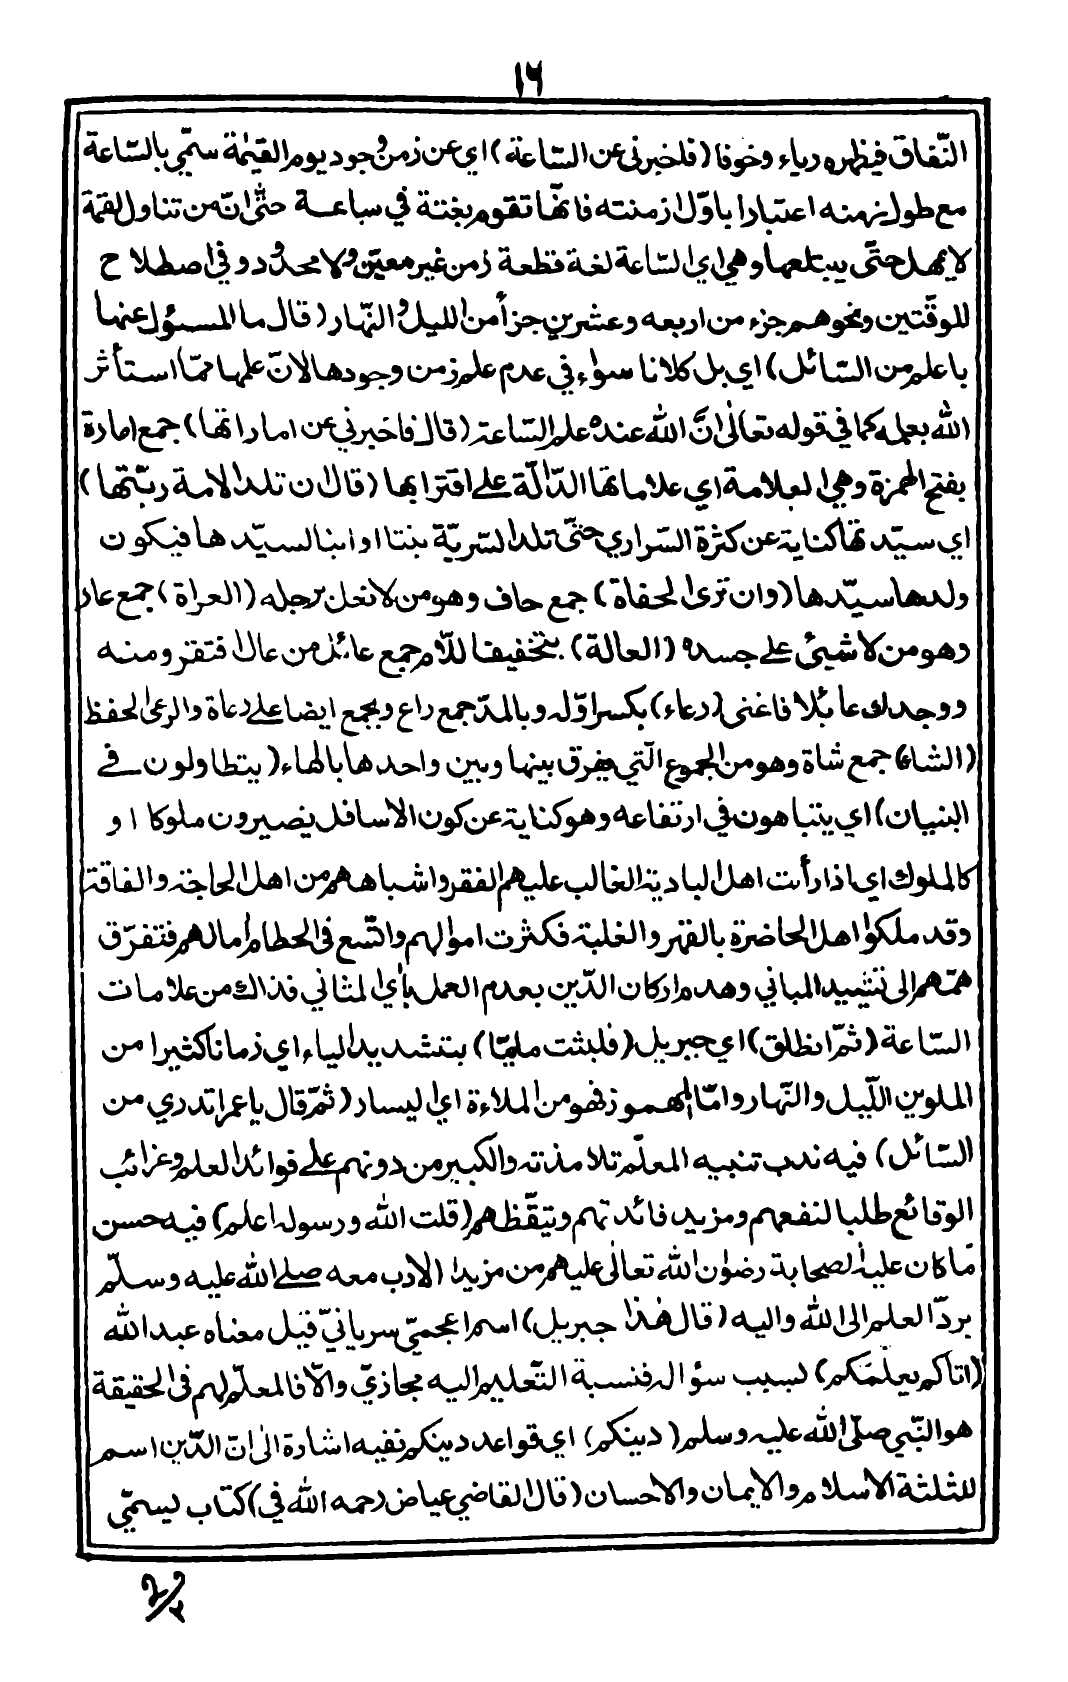 ١٦
النّفاق فيظهره رياء وخوفا (فاخبرنى عن السّاعة) اي عن زمن وجود يوم القيٰمة سمّي بالسّاعة
مع طول زمنه اعتبارا باوّل ازمنته فانّها تقوم بغتة في ساعة حتّٰى انّ من تناول لقمة
لا يمهل حتّى يبتلعها وهي اي السّاعة لغة قطعة زمن غير معيّن ولا محدود وفي اصطلاح
للوقّتين ونحوهم جزء من اربعه وعشرين جزأ من الليل والنّهار (قال ما المسئول عنها
باعلم من السّائل) اي بل كلانا سوٰاء في عدم علم زمن وجودها لانّ علمها ممّا استأثر
اللّٰه بعلمه كما في قوله تعالىٰ انَّ اللّٰه عنده علم السّاعة (قال فاخبرني عن اماراتها) جمع امارة
بفتح الهمزة وهي العلامة اي علاماتها الدّالّة على اقترابها (قال ان تلد الامة ربّتها)
اي سيّدتها كناية عن كثرة السّراري حتّى تلد السّريّة بنتا او ابنا لسيّدها فيكون
ولدها سيّدها (وان ترى الحفاة) جمع حاف وهو من لا نعل برجله (العراة) جمع عار
وهو من لا شيئ على جسده (العالة) بتخفيف اللّام جمع عائل من عال افتقر ومنه
ووجدك عائلا فاغنى (رعاء) بكسر اوّله وبالمدّ جمع راع ويجمع ايضا على رعاة والرعى الحفظ
(الشاء) جمع شاة وهو من الجموع الّتي يفرق بينها وبين واحدها بالهاء (يتطاولون في
البنيان) اي يتباهون في ارتفاعه وهو كناية عن كون الاسافل يصيرون ملوكا او
كالملوك اي اذا رأت اهل البادية الغالب عليهم الفقر واشباههم من اهل الحاجة والفاقة
وقد ملكوا اهل الحاضرة بالقهر والغلبة فكثرت اموالهم واتّسع فى الحطام اٰمالهم فتفرّق
همّهم الى تشييد المباني وهدم اركان الدّين بعدم العمل باٰي المثاني فذالك من علامات
السّاعة (ثمّ انطلق) اي جبريل (فلبثت مليّا) بتشديد الياء اي زمانا كثيرا من
الملوين اللّيل والنّهار وامّا المهموز فهو من الملاءة اي اليسار (ثمّ قال يا عمر اتدري من
السّائل) فيه ندب تنبيه المعلّم تلامذته والكبير من دونهم على فوائد العلم وغرائب
الوقائع طلبا لنفعهم ومزيد فائدتهم وتيقّظهم (قلت اللّٰه ورسوله اعلم) فيه حسن
مّا كان عليه الصحابة رضوٰن اللّٰه تعالىٰ عليهم من مزيد الادب معه صلى اللّٰه عليه وسلّم
بردّ العلم الى اللّٰه واليه (قال هٰذا جبريل) اسم اعجميّ سريانيّ قيل معناه عبد اللّٰه
(اتاكم يعلّمكم) بسبب سؤاله فنسبة التّعليم اليه مجازيّ والّا فالمعلّم لهم فى الحقيقة
هو النّبي صلّى اللّٰه عليه وسلم (دينكم) اي قواعد دينكم ففيه اشارة الى انّ الدّين اسم
للثلثة الاسلام والايمان والاحسان (قال القاضي عياض رحمه اللّٰه في) كتاب يسمّي